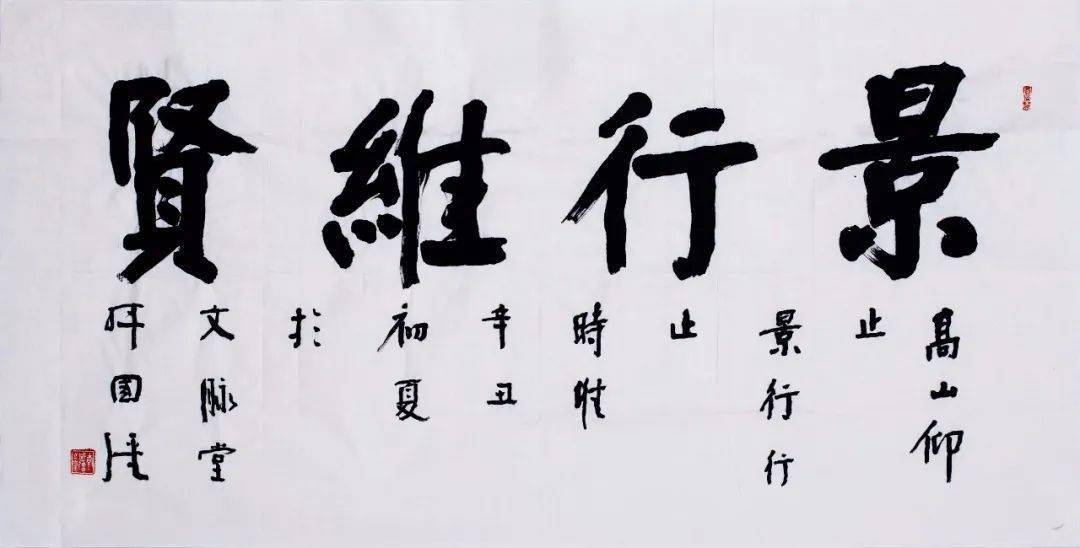 景行維賢
高山仰
止
景行行
止
時
辛丑
初夏
於
文脉堂